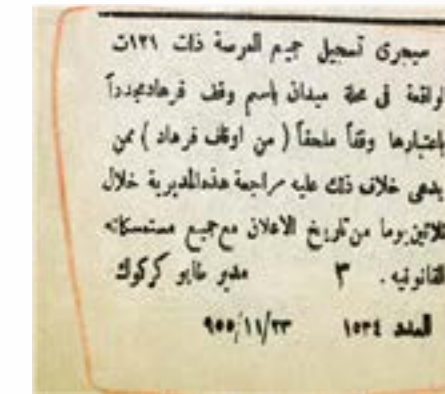 سيجرى تسجيل جميع العرصة ذات ١٢١ت
لواقعة في محلة ميدان باسم وقف فرهاد مجدداً
باعتبارها وقفاً ملحقاً ( من اوقاف فرهاد ) ممن
يدعى خلاف ذلك عليه مراجعة هذه المديرية خلال
ثلاثين يوما من تاريخ الاعلان مع جميع مستمسكاته
القانونيه . ٣ مدير طابو كركوك
العدد ١٥٣٤ ٩٥٥/١١/٢٣